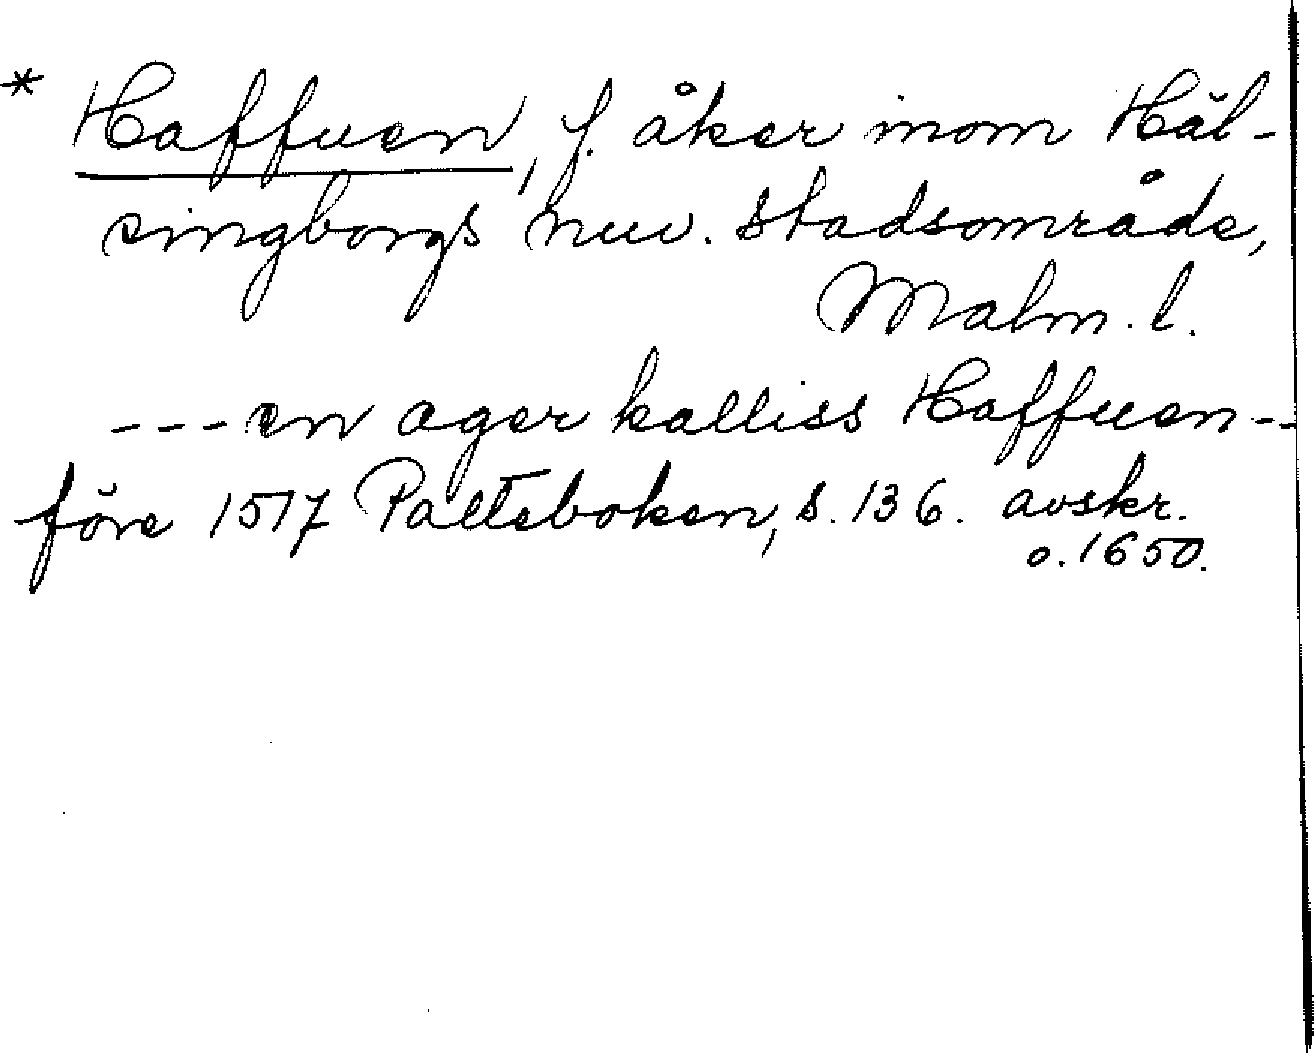 * Haffuen, f. åker inom Häl-
singborgs nuv. stadsområde,
Malm. l.
---en ager kalliss Haffuen--
före 1517 Palteboken, s. 136. avskr.
o. 1650.